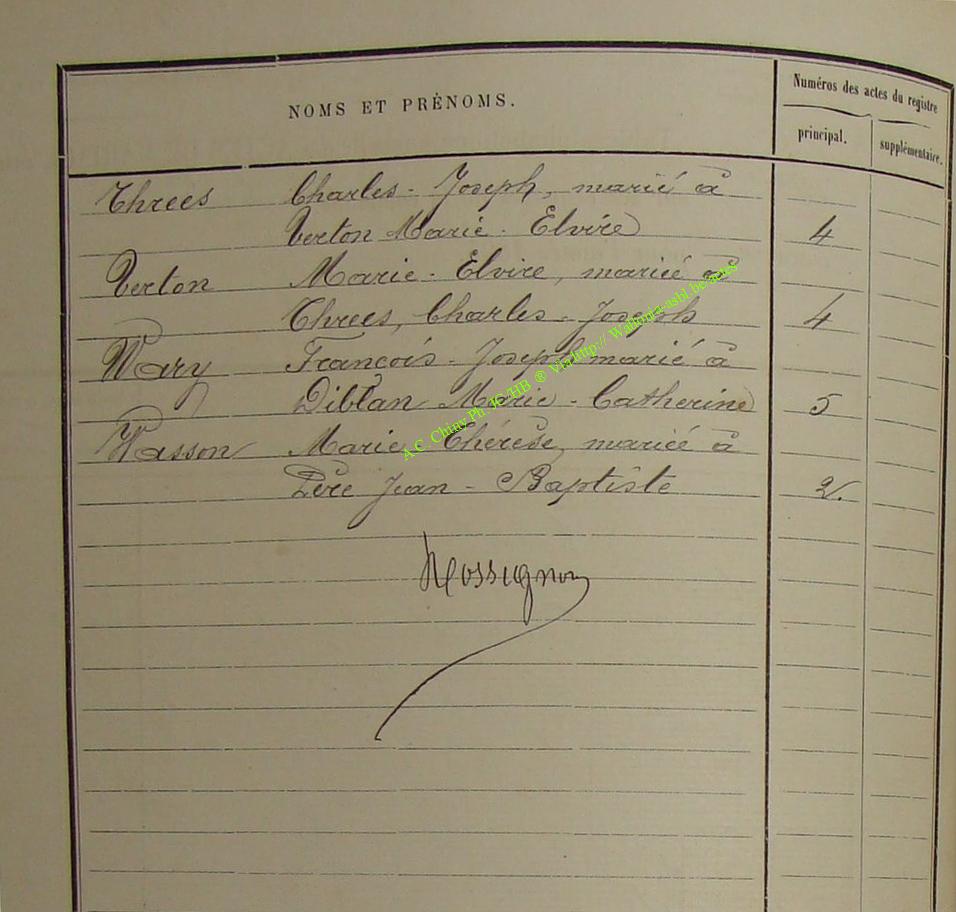 NOMS ET PRÉNOMS.
Numéros des actes du registre
principal.
supplémentaire.
Threes Charles - Joseph, marié à
Verton Marie - Elvire 4
Verton Marie - Elvire, mariée à
Threes, Charles - Joseph 4
Wary François - Joseph marié à
Diblan Marie - Catherine 5
Wasson Marie Thérèse, mariée à
Père Jean - Baptiste 2.
Rossignon
A.C. Chiny Ph JC/HB ® Via http:// Wallonia-asbl.be/actes